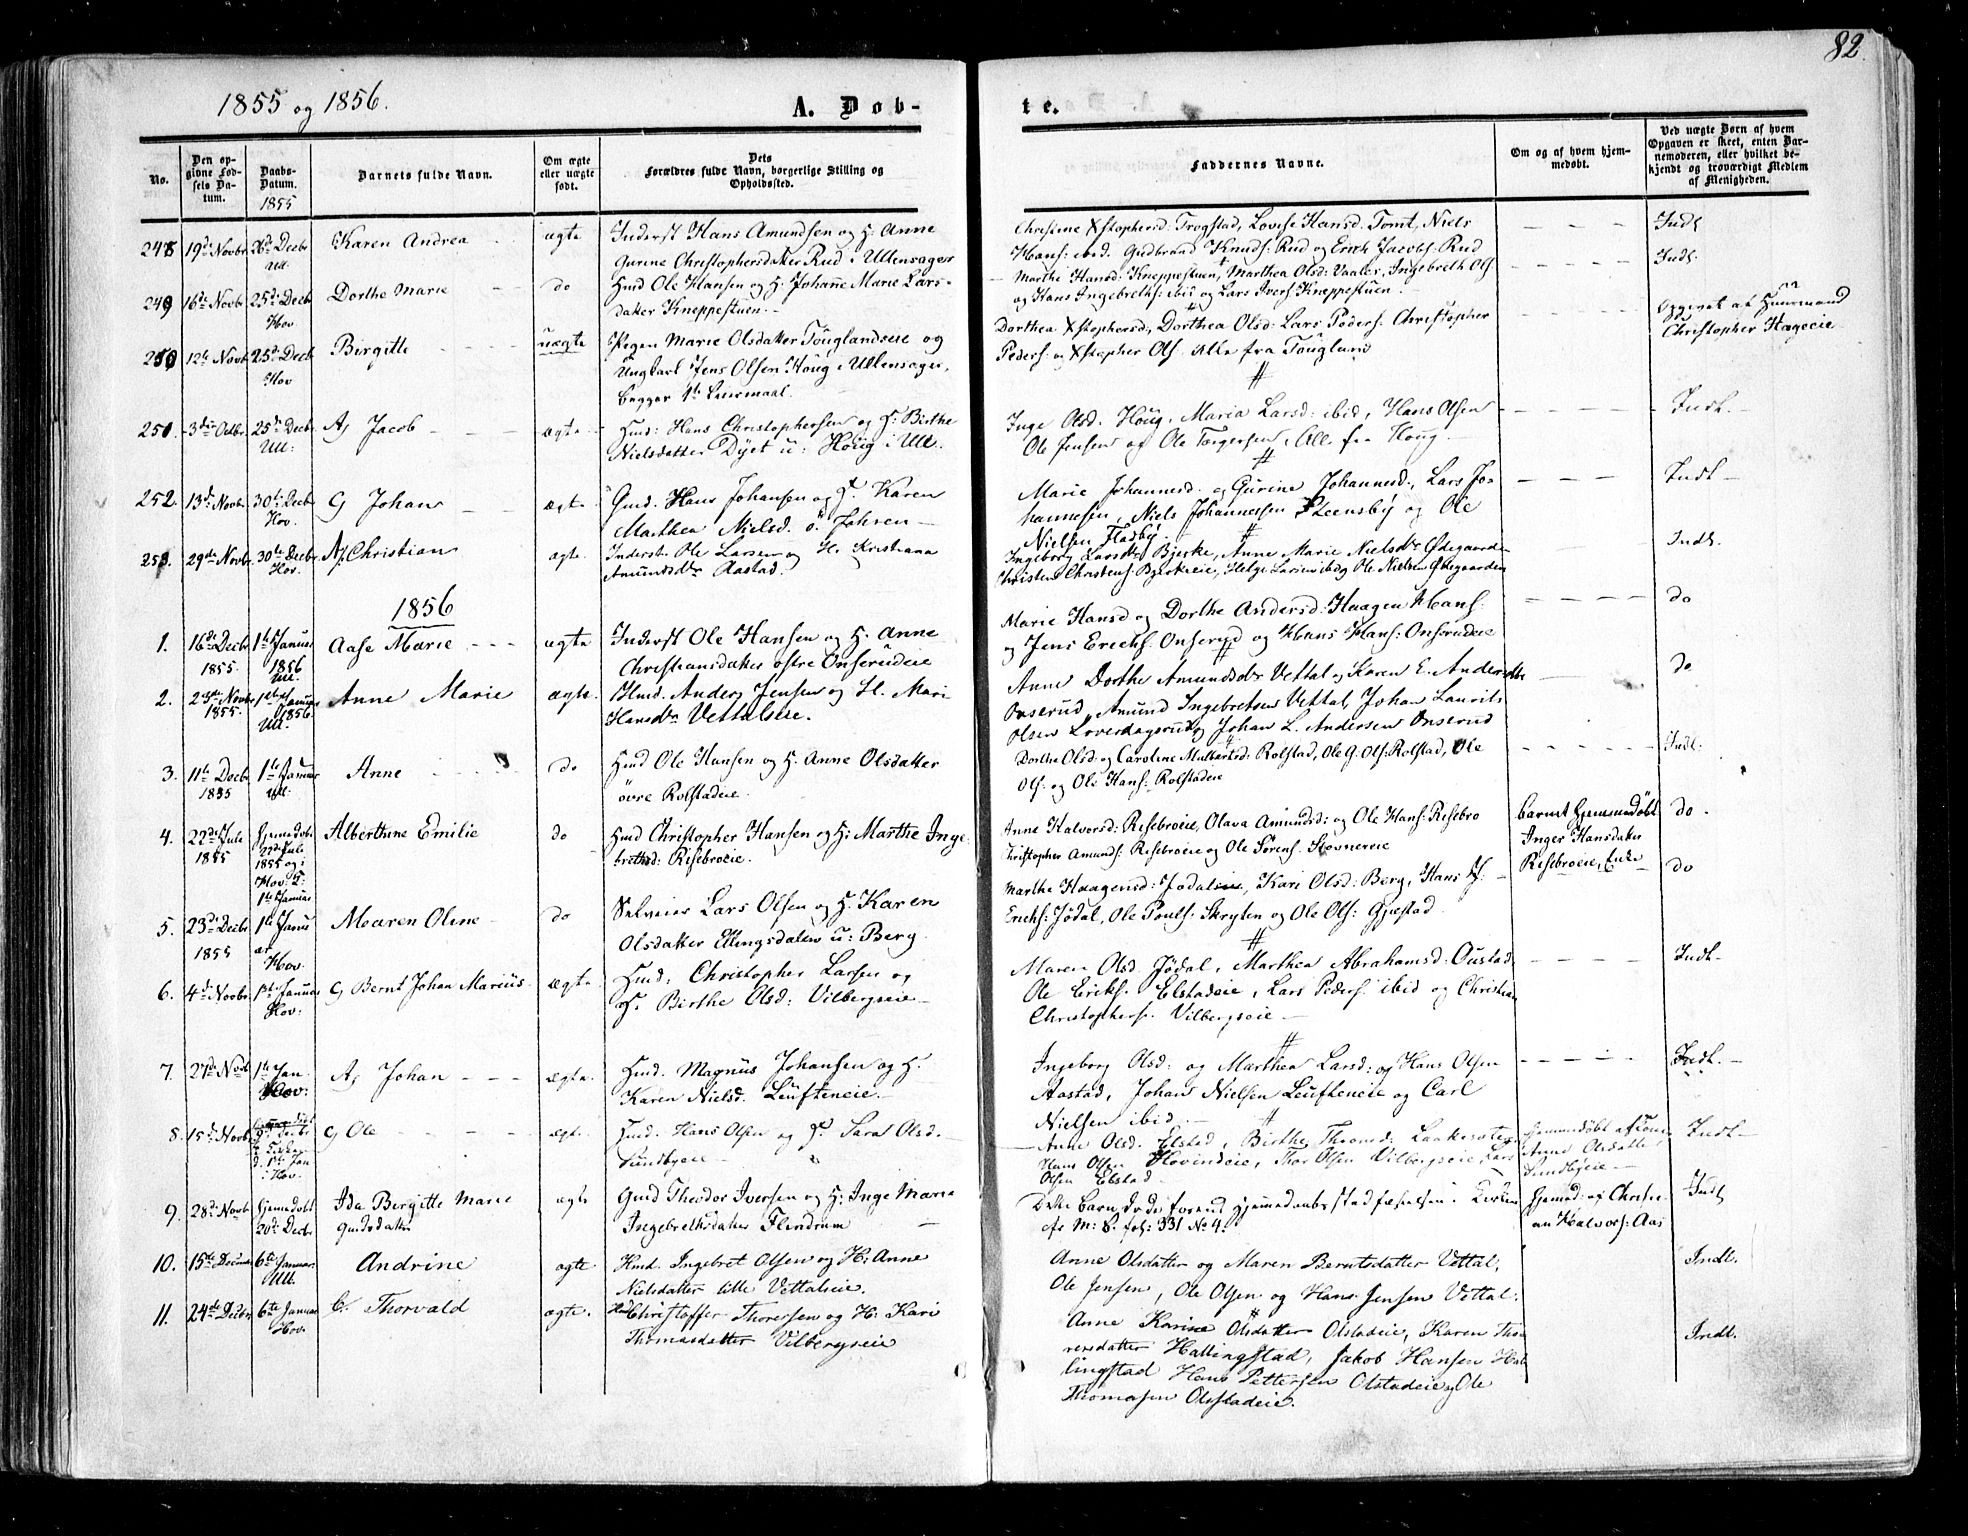 82.
1855 og 1856.
A. Døb-
te.
No.
Den opgivne Fødsels Datum.
Daabs-Datum.
1855
Barnets fulde Navn.
Om ægte eller uægte født.
Dets Forældres fulde Navn, borgerlige Stilling og Opholdssted.
Faddernes Navne.
Om og af hvem hjemmedøbt.
Ved uægte Børn af hvem Opgaven er skeet, enten Barnemoderen, eller hvilket bekjendt og troværdigt Medlem af Menigheden.
248 19de Novbr 26de Decbr Ull. Karen Andrea ægte Inderst Hans Amundsen og H. Anne
Gurine Christophersdatter Rud i Ullensager
Christine Xstophersd Trogstad, Lovise Hansd. Tomt, Niels
Hans: ibid. Gudbrand Knuds: Rud og Erich Jacobs: Rud
Indl
249 16de Novbr 25de Decbr Hov Dorthe Marie do Hmd Ole Hansen og H. Johanne Marie Lars-
datter Kneppestuen.
Marthe Hansd: Kneppestuen, Marthea Olsd: Vaaler, Ingebreth Ols
og Hans Ingebreths: ibid og Lars Ivers: Kneppestuen.
Indl.
250 12te Novbr 25de Decbr Hov Birgitte uægte Pigen Marie Olsdatter Töuglandseie og
Ungkarl Jens Olsen Höug i Ullensager,
begges 1te Leiermaal.
Dorthea Xstophersd, Dorthea Olsd: Lars Peders: Christopher
Peders: og Xstopher Ols. alle fra Töugland
Opgivet af Huusmand
Christopher Haugeeie
251. 3die Octbr 25de Decbr Ull: Aj Jacob ægte Hmd: Hans Christophersen og H: Birthe
Nielsdatter Dyet u: Höug i Ull.
Inge Olsd. Höug, Maria Larsd: ibid, Hans Olsen
Ole Jensen og Ole Torgersen, Alle fra Houg
Indl.
252. 13de Novbr 30te Decbr Hov. G Johan ægte Gmd. Hans Johansen og H. Karen
Marthea Nielsd. ö. Jahren
Marie Johannesd. og Gurine Johannesd., Lars Jo-
hannesen, Niels Johannesen Steensby og Ole
Nielsen Fladby.
Indl
253. 29de Novbr 30te Decbr Hov. Aj. Christian ægte Inderst. Ole Larsen og H. Kristiana
Amundsdr Aastad.
Ingeborg Larsdr Bjerke, Anne Marie Nielsdr Ødegaarden
Christen Christens: Bjerkeeie, Helge Larsen ibid og Ole Nielsen Ødegaarden
Indl.
1856
1. 16de Decbr 1855. 1te Januar 1856 Ull. Aase Marie ægte Inderst Ole Hansen og H. Anne
Christiansdatter østre Onserudeie
Marie Hansd og Dorthe Andersd: Haagen Hans:
og Jens Erichs. Onserud og Hans Hans: Onserudeie
do
2. 23de Novbr 1855. 1ste Januar 1856. Ull. Anne Marie ægte. Hmd. Anders Jensen og H. Mari
Hansdr Vettaleie.
Anne Dorthe Amundsdr Vettal og Karen E. Andersdtr
Onserud, Amund Ingebretsen Vettal, Johan Laurits
Olsen Loverdagsrud og Johan L. Andersen Onserud
do
3. 11te Decbr 1855 1te Januar Ull. Anne do Hmd Ole Hansen og H. Anne Olsdatter
övre Rolstadeie.
Dorthe Olsd: og Caroline Mulbertsd: Rolstad, Ole G. Ols: Rolstad, Ole
Ols: og Ole Hans: Rolstadeie
Indl.
4. 22de Juli 1855 Hjemmedøbt 22de Juli 1855 og i Hov. K: 1te Januar Alberthine Emilie do Hmd Christopher Hansen og H: Marthe Inge-
brethsd: Risebroeie.
Anne Halvorsd: Risebroeie, Olava Amundsd: og Ole Hans: Risebro
Christopher Amunds: Risebroeie og Ole Sörens: Hovnereie
barnet hjemmedöbt
Inger Hansdatter
Risebroeie, Enke
do.
5. 23de Decbr 1855 1te Januar Hov. Maren Oline do Selveier Lars Olsen og H. Karen
Olsdatter Ellingsdalen u: Berg.
Marthe Haagensd: Jödalseie, Kari Olsd: Berg, Hans H.
Erichs: Jödal, Ole Pouls: Skryten og Ole Ols: Gjestad
do
6. 4de Novbr. 1ste Januar Hov: G Bernt Johan Marius. ægte. Hmd: Christopher Larsen og
H. Birthe Olsd: Vilbergseie
Maren Olsd Jödal, Marthea Abrahamsd: Oustad
Ole Eriks. Elstadeie, Lars Peders. ibid og Christian
Christophers. Vilbergseie
Indl.
7. 27de Novbr 1te Jan. Hov: Aj Johan ægte. Hmd. Magnus Johansen og H.
Karen Nielsd. Leufteneie.
Ingeborg Olsd: og Marthea Larsd: og Hans Olsen
Aastad, Johan Nielsen Leufteneie og Carl
Nielsen ibid.
Indl.
8. 15de Novbr. G Ole ægte. Hmd. Hans Olsen og H. Sara Olsd.
Sundbyeie.
Anne Olsd. Elstad, Birthe Thronds: Laakesveteie
Hans Olsen Hovindeie, Thor Olsen Vilbergseie, Lars
Olsen Elstad.
hjemmedöbt af
Anne Olsdatter
Sundbyeie
Indl.
9. 28de Novbr hjemmedöbt 20de Decbr Ida Birgitte Marie
Gudsdatter
ægte Gmd Theodor Iversen og H: Inge Maria
Ingebrethsdatter Flindrum
Dette barn döde forend hjemmedaabs stadfæstelsen i Kirken
cfr M: S. fol: 331 No 4.
hjemd: af Christi-
an Halvors: Aas
Indl
10. 15de Decembr 6te Januar. Ull. Andrine ægte Hmd. Ingebret Olsen og H: Anne
Nielsdatter lille Vettaleie.
Anne Olsdatter og Maren Berntsdatter Vettal,
Ole Jensen, Ole Olsen og Hans Jensen Vettal.
Indl.
11. 24de Decbr. 6te Januar Hov. C. Thorvald ægte. Hmd Christoffer Thoresen og H: Kari
Thomasdatter Vilbergseie
Anne Karine Olsdatter Olstadeie, Karen Tho-
resdatter Hallingstad, Jakob Hansen Hal-
lingstad Hans Pettersen Olstadeie og Ole
Thomasen Olstadeie.
Indl.